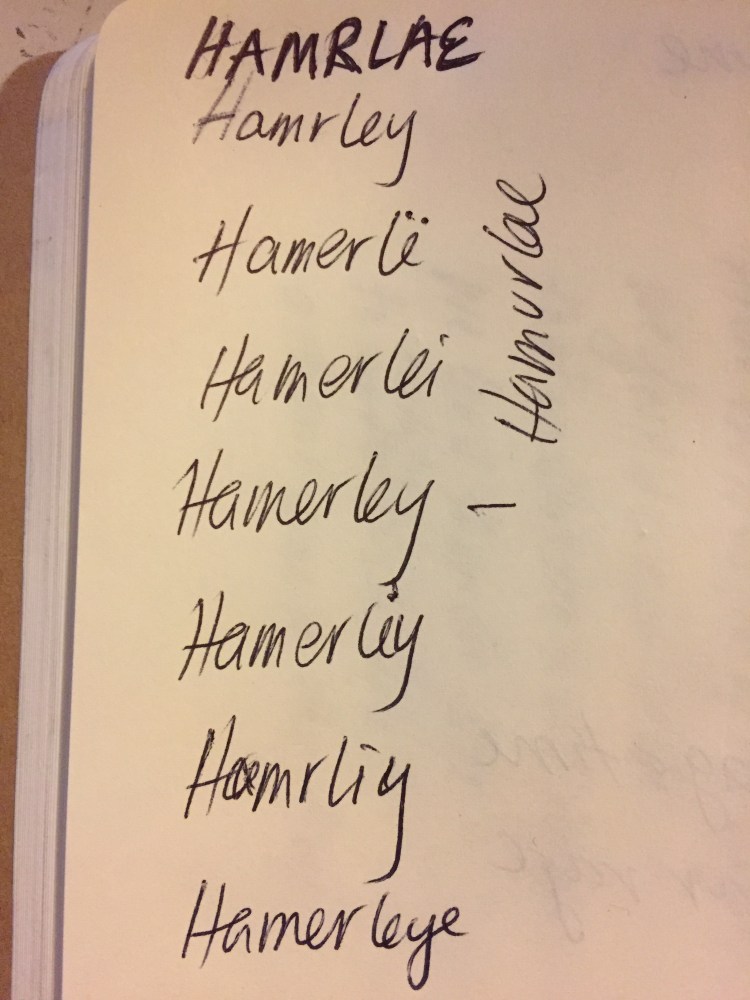 HAMRLAE
Hamrley
Hamerlë
Hamerlei
Hamerley –
Hamurlae
Hamerliy
Hamrliy
Hamerleye